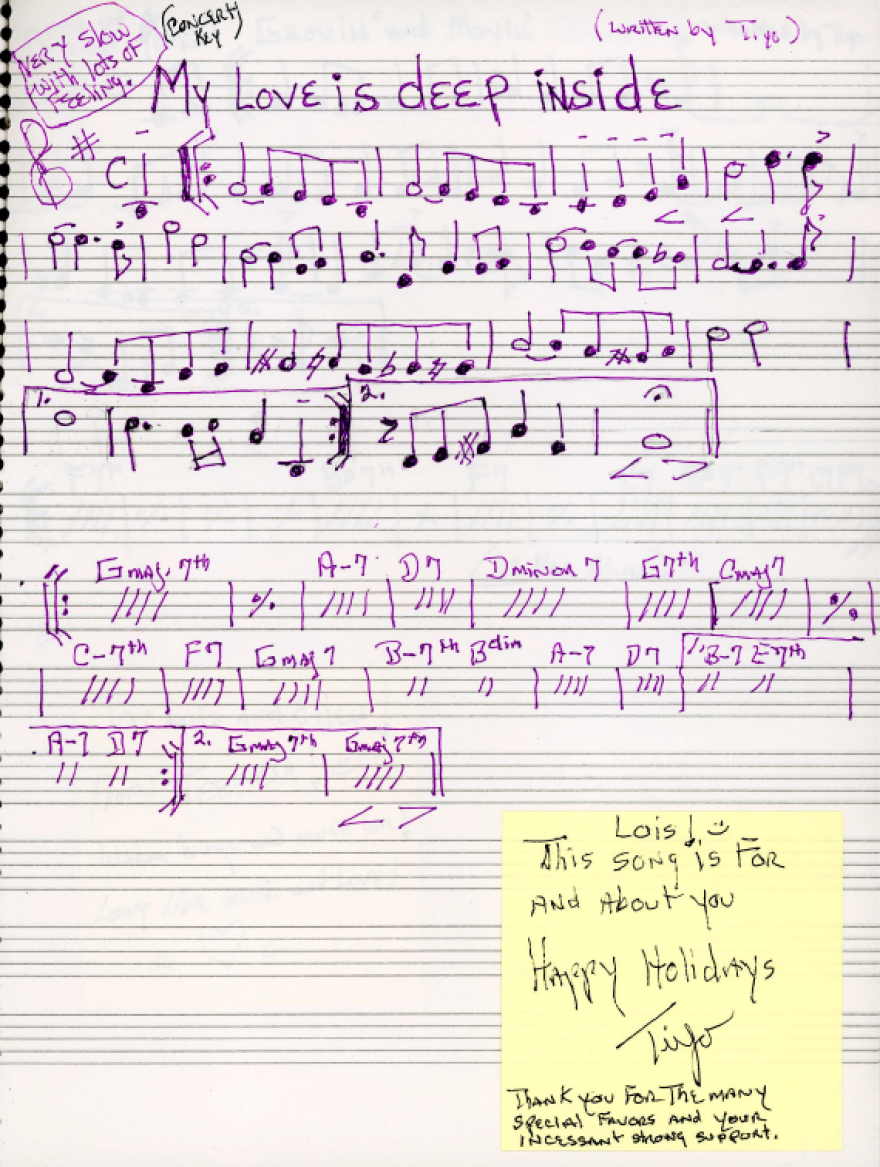 VERY SLOW
WITH LOTS OF
FEELING.
(CONCERT
KEY)
(WRITTEN by Tiyo)
My Love is deep inside
C
1.
2.
Gmaj. 7th A-7 D7 Dminor 7 G7th Cmaj7
C-7th F7 Gmaj 7 B-7th Bdim A-7 D7 1. B-7 E7th
A-7 D7 2. Gmaj 7th Gmaj 7th
Lois! :)
This song is For
And About you
Happy Holidays
Tiyo
THANK you FOR THE MANY
SPECIAL FAVORS AND YOUR
INCESSANT STRONG SUPPORT.